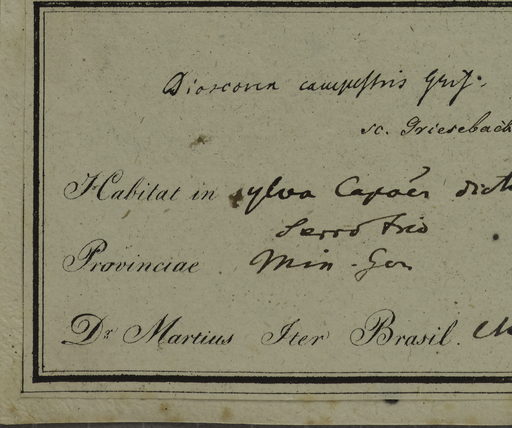 Dioscorea campestris Gris.
sc. Griesebach
Habitat in sylva Capões dict
Serro frio
Provinciae Min. Ger
Dr. Martius Iter Brasil.